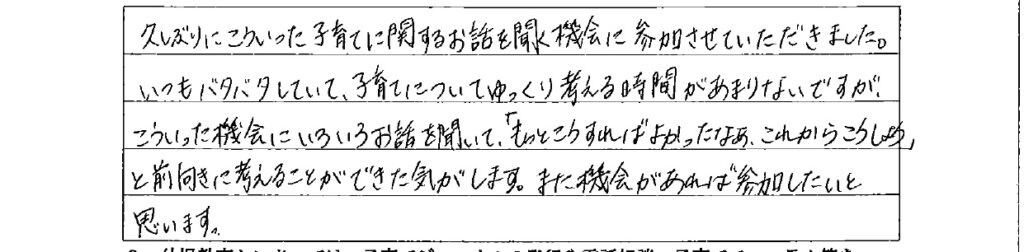 久しぶりにこういった子育てに関するお話を聞く機会に参加させていただきました。
いつもバタバタしていて、子育てについてゆっくり考える時間があまりないですが、
こういった機会にいろいろお話を聞いて、「もっとこうすればよかったなぁ、これからこうしよう」
と前向きに考えることができた気がします。また機会があれば参加したいと
思います。